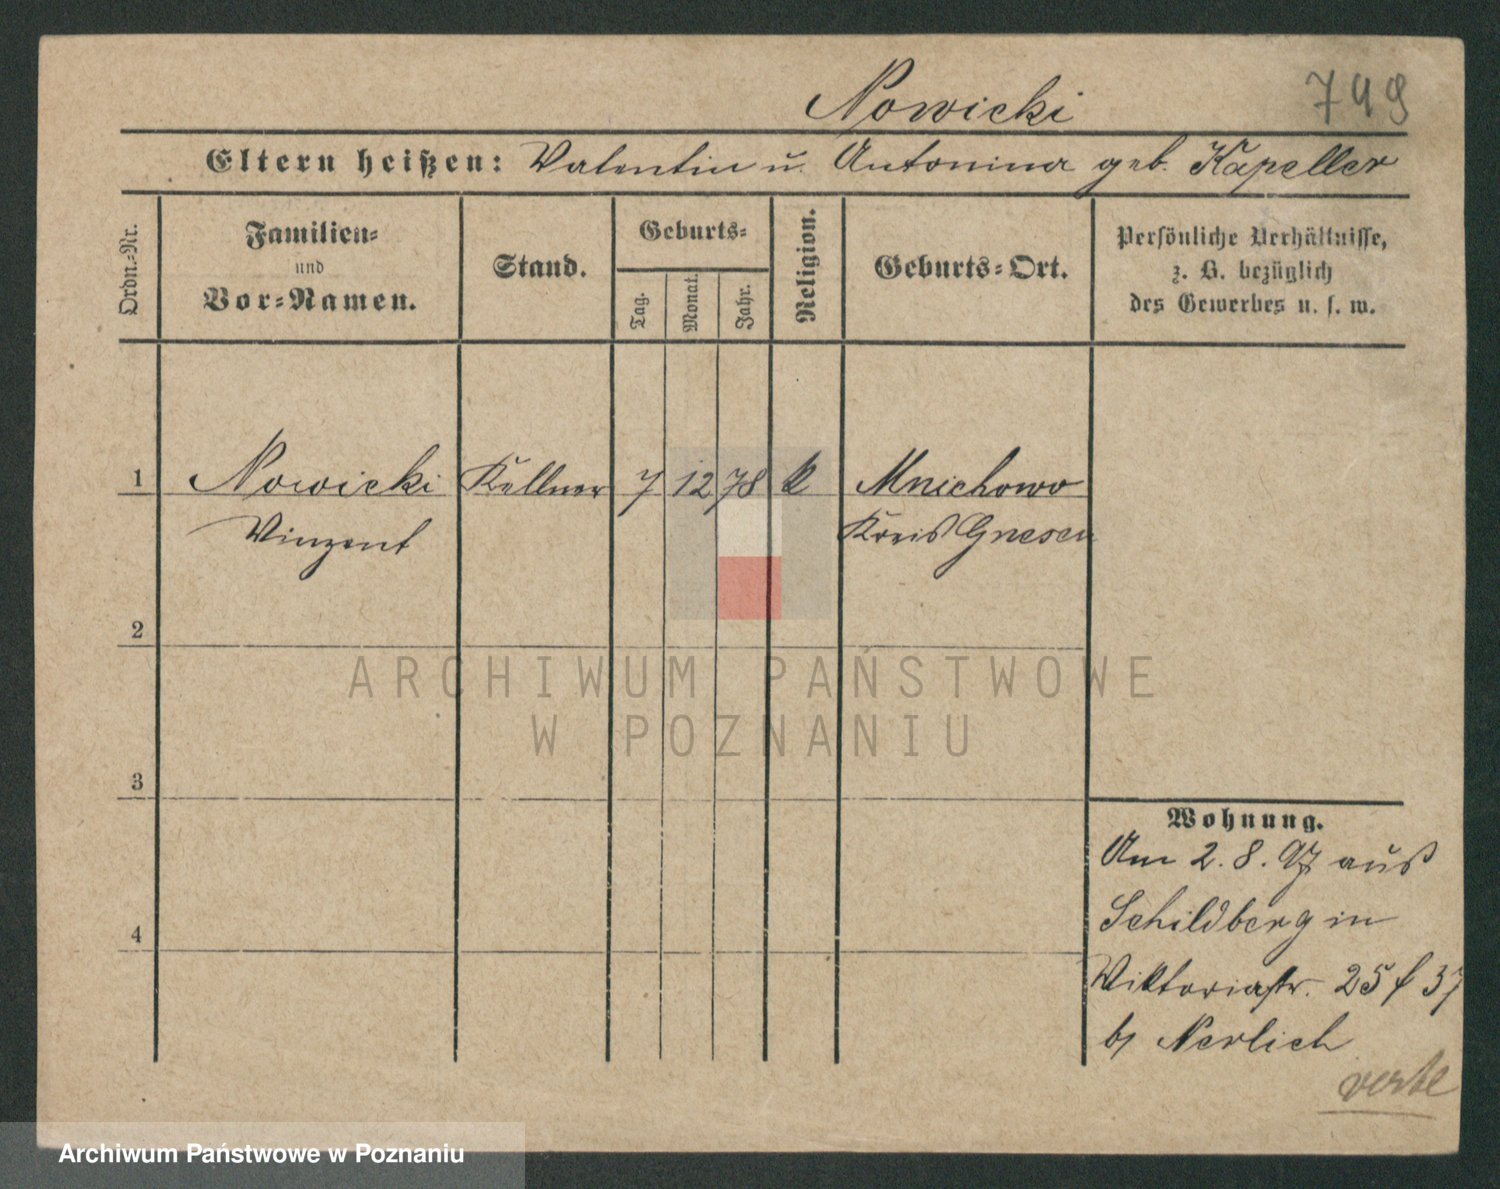 Nowicki
749
Eltern heißen: Valentin u. Antonina geb. Kapeller
Ordn.-Nr.
Familien-
und
Vor-Namen.
Stand.
Geburts-
Tag.
Monat.
Jahr.
Religion.
Geburts-Ort.
Persönliche Verhältnisse,
z. B. bezüglich
des Gewerbes u. s. w.
1 Nowicki Kellner 7 12 78 k Mnichowo
Vinzent Kreis Gnesen
2
ARCHIWUM PAŃSTWOWE
W POZNANIU
3
Wohnung.
Am 2. 8. 97 aus
Schildberg in
4
Viktoriastr. 25 f 37
b/ Nerlich
verte
Archiwum Państwowe w Poznaniu